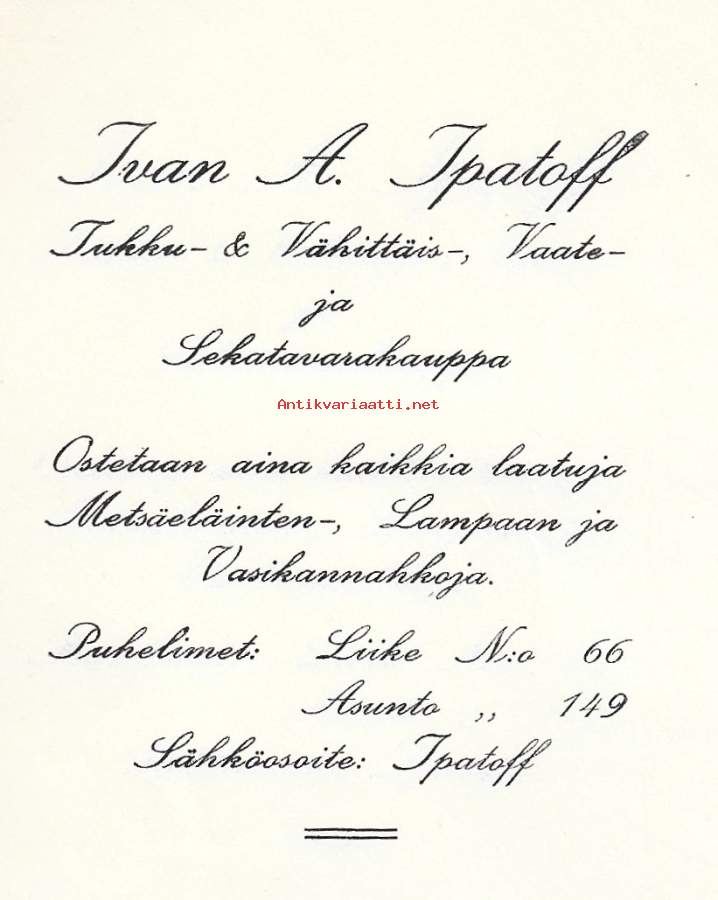 Ivan A. Ipatoff
Tukku- & Vähittäis-, Vaate-
ja
Sekatavarakauppa
Antikvariaatti.net
Ostetaan aina kaikkia laatuja
Metsäeläinten-, Lampaan ja
Vasikannahkoja.
Puhelimet: Liike N:o 66
Asunto ,, 149
Sähköosoite: Ipatoff